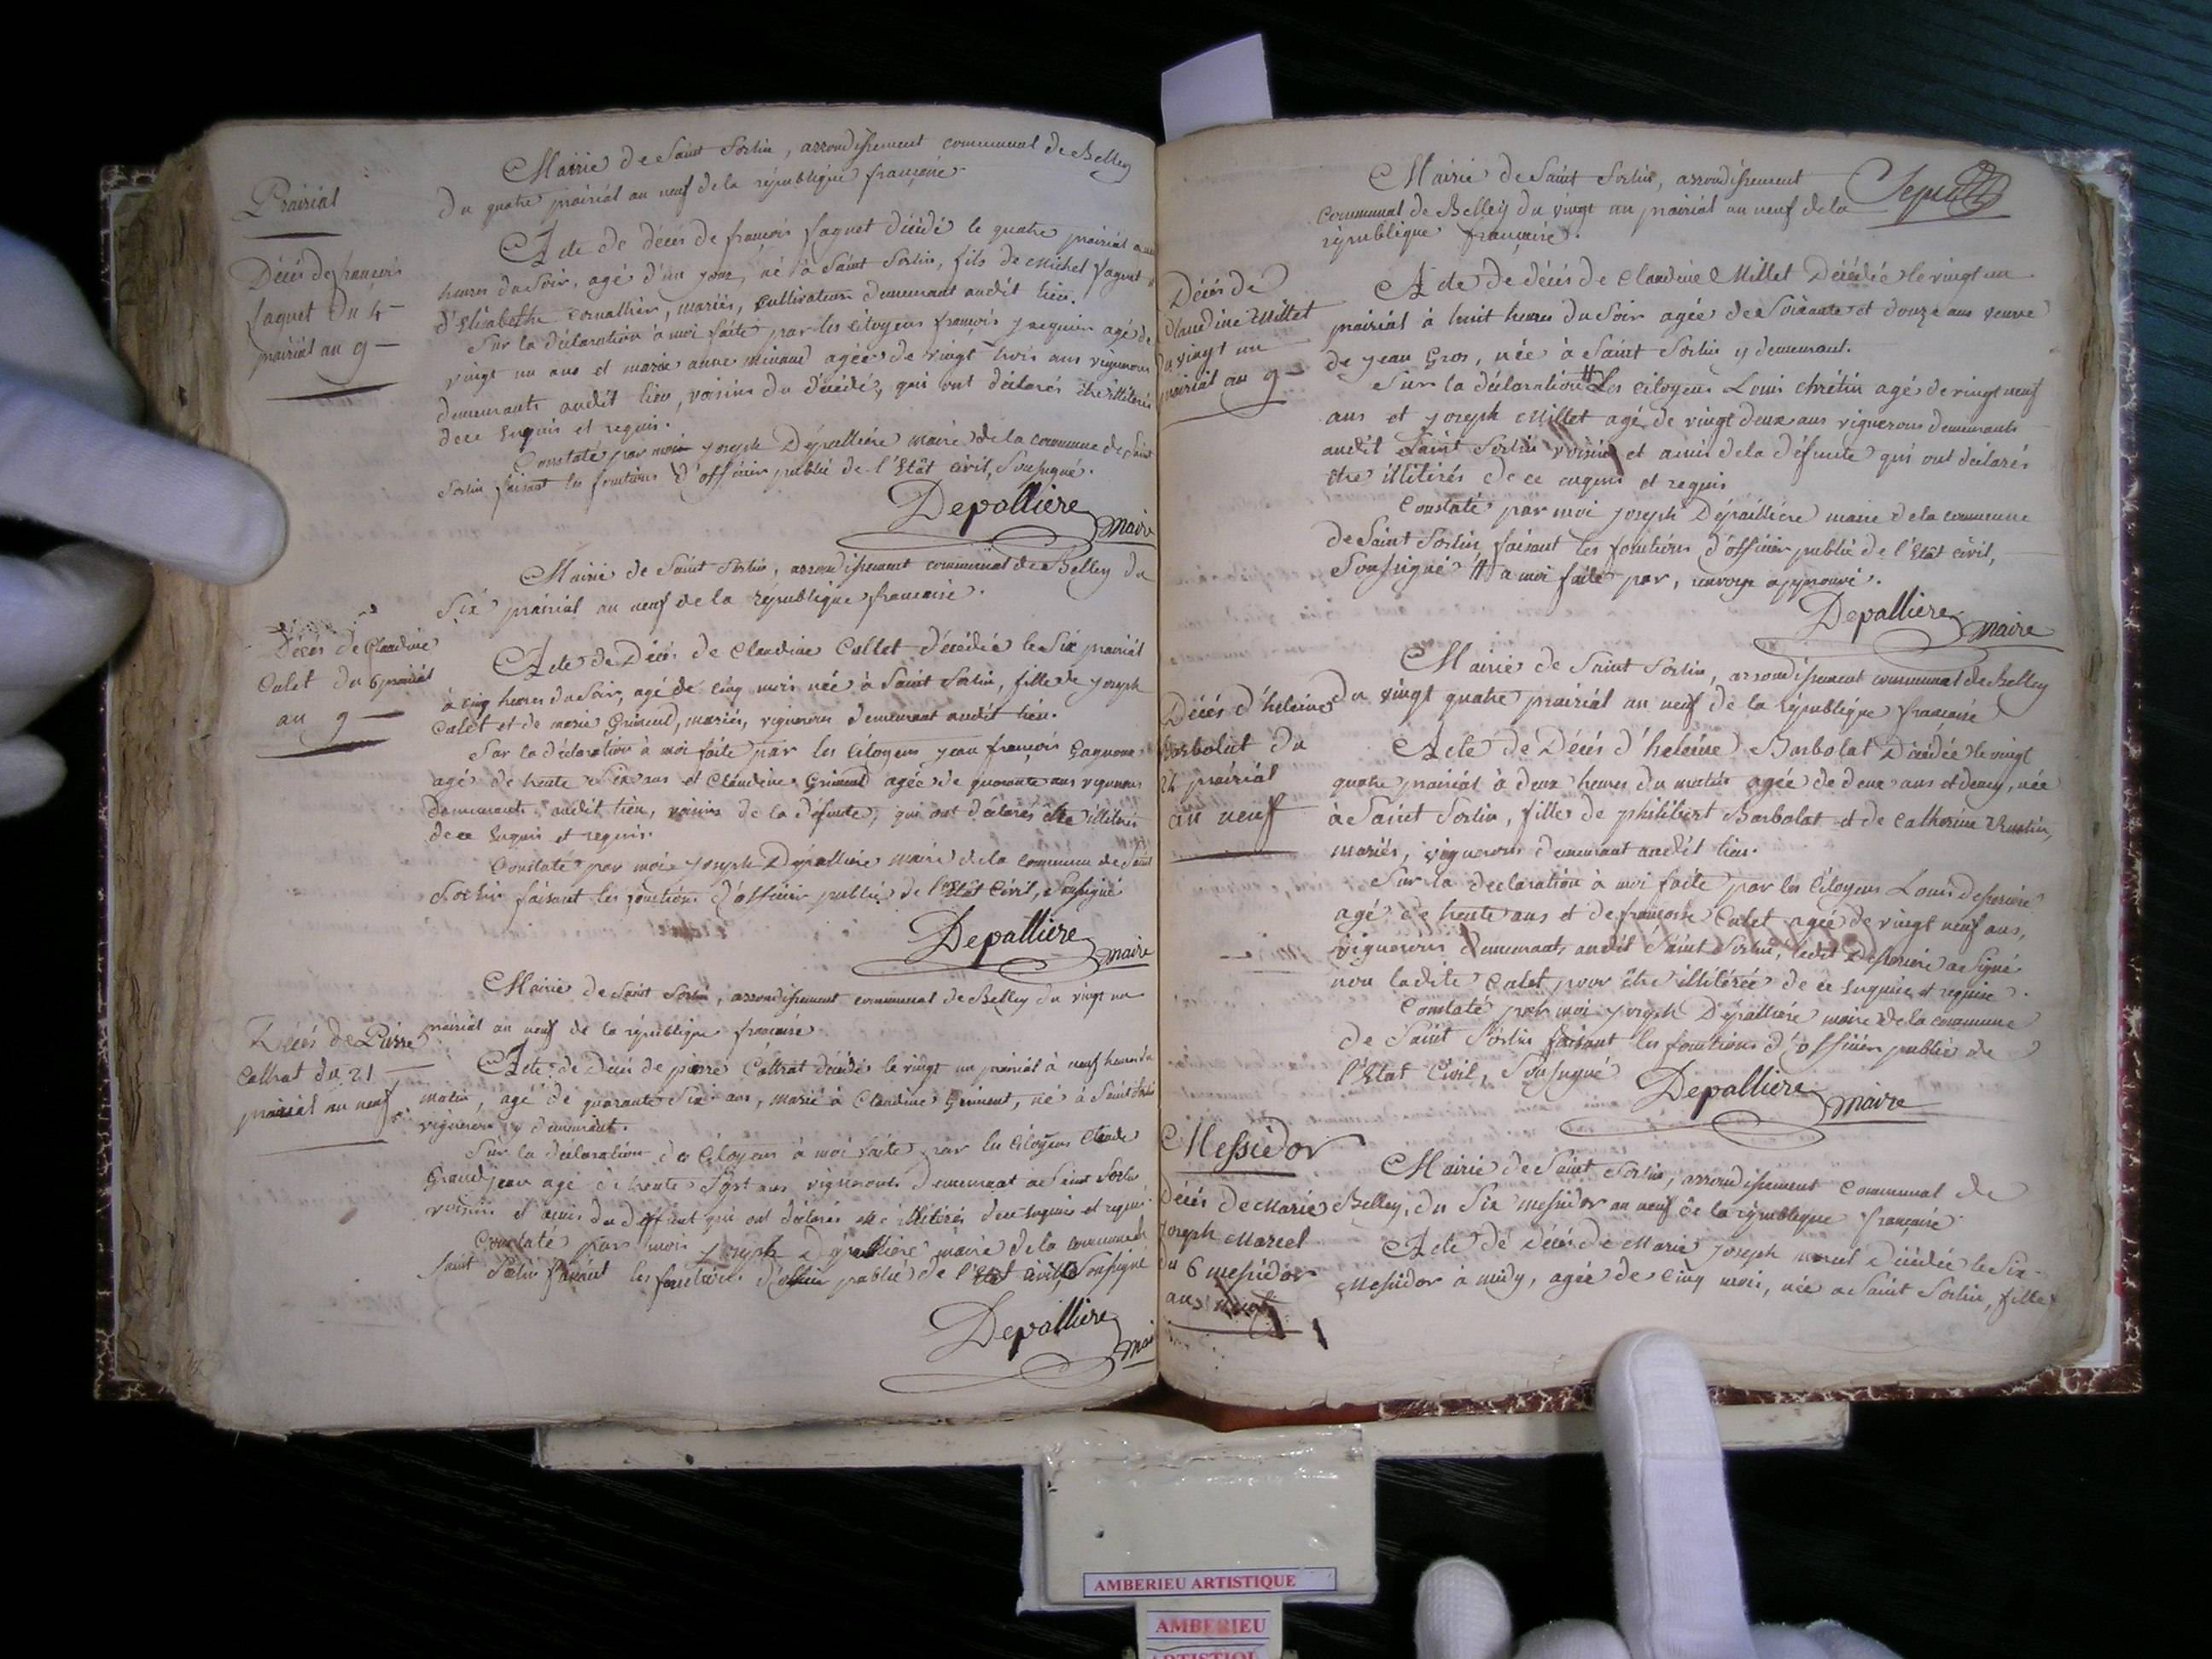 Prairial
Mairie de Saint Sorlin, arrondissement communal de Belley
du quatre prairial an neuf de la république française.
Décès de françois
faquet du 4
prairial an 9
Acte de décès de françois faquet décédé le quatre prairial a
heures du soir, agé d'un jour, né à Saint Sorlin, fils de Michel faquet
d'Elisabethe Cornallier, mariés, cultivateurs demeurant audit lieu.
Sur la déclaration à moi faite par les citoyens françois Jaquier agé de
vingt un ans et marie anne minaud agée de vingt trois ans vignerons
demeurants audit lieu, voisins du décédé, qui ont déclarés être illitérés
de ce Enquis et requis.
Constaté par moi Joseph Dépallière maire de la commune de Saint
Sorlin faisant les fonctions d'officier public de l'Etât civil, Soussigné.
Depalliere maire
Mairie de Saint Sorlin, arrondissement communal de Belley du
Six prairial an neuf de la République française.
Décès de Claudine
Calet du 6 prairial
an 9
Acte de Décès de Claudine Callet décédée le Six prairial
à cinq heures du Soir, agé de cinq mois née à Saint Sorlin, fille de Joseph
Calet et de marie Grimend, mariés, vignerons demeurant audit lieu.
Sur la déclaration à moi faite par les Citoyens Jean françois
agé de trente Six ans et Claudine Grimend agée de quarante ans vignerons
Demeurants audit lieu, voisins de la défunte, qui ont déclarés être illitérés
de ce Enquis et requis.
Constaté par moi Joseph Dépallière maire de la commune de Saint
Sorlin faisant les fonctions d'officier public de l'Etât Civil, Soussigné
Depalliere maire
Mairie de Saint Sorlin, arrondissement communal de Belley du vingt un
prairial an neuf de la république française
Décès de Pierre
Cattrat du 21
prairial an neuf
Acte de Décès de pierre Cattrat décédé le vingt un prairial à neuf heures du
matin, agé de quarante Six ans, marié à Claudine Griment, né à Saint Sorlin
vigneron y demeurant.
Sur la déclaration de Citoyens à moi faite par les Citoyens Claude
Grandjean agé de trente Sept ans vignerons demeurant a Saint Sorlin
voisins et amis du deffunt qui ont déclarés être illitérés de ce Enquis et requis
Constaté par moi Joseph Dépalliere maire de la commune de
Saint Sorlin faisant les fonctions d'officier public de l'Etat civil Soussigné
Depalliere mai
Mairie de Saint Sorlin, arrondissement
communal de Belley du vingt un prairial an neuf de la
république française.
Décès de
Claudine Millet
du vingt un
prairial an 9
Acte de décès de Claudine Millet Décédée le vingt un
prairial à huit heures du Soir agée de Soixante et douze ans veuve
de Jean Gros, née à Saint Sorlin y demeurant.
Sur la déclaration # Les citoyens Louis chrétin agé de vingt neuf
ans et Joseph Millet agé de vingt deux ans vignerons demeurants
audit Saint Sorlin voisins et amis de la défunte qui ont déclarés
être illitérés de ce enquis et requis
Constaté par moi Joseph Dépaillière maire de la commune
de Saint Sorlin faisant les fonctions d'officier public de l'Etât civil,
Soussigné # a moi faite par, renvoye approuvé.
Depalliere maire
Mairie de Saint Sorlin, arrondissement communal de Belley
du vingt quatre prairial an neuf de la République française
Décès d'heleine
Barbolat du
24 prairial
an neuf
Acte de Décès d'heleine Barbolat Décédée le vingt
quatre prairial à deux heures du matin agée de deux ans et demey, née
à Saint Sorlin, fille de philibert Barbolat et de Catherine
mariés, vignerons demeurant audit lieu.
Sur la declaration à moi faite par les Citoyens Louis
agé de trente ans et de françoise Calet agée de vingt neuf ans,
vignerons demeurants audit Saint Sorlin, ledit a Signé
non ladite Calet pour être illitérée de ce Enquise et requise.
Constaté par moi Joseph Dépallière maire de la commune
de Saint Sorlin faisant les fonctions d'officier public de
l'Etat Civil, Soussigné
Depalliere maire
Messidor
Mairie de Saint Sorlin, arrondissement communal de
Belley, du Six messidor an neuf de la république française
Décès de Marie
Joseph Marcel
du 6 messidor
an neuf
Acte de Décès de Marie Joseph Marcel décédée le Six
Messidor à midy, agée de cinq mois, née a Saint Sorlin, fille
AMBERIEU ARTISTIQUE
AMBERIEU
ARTISTIQUE